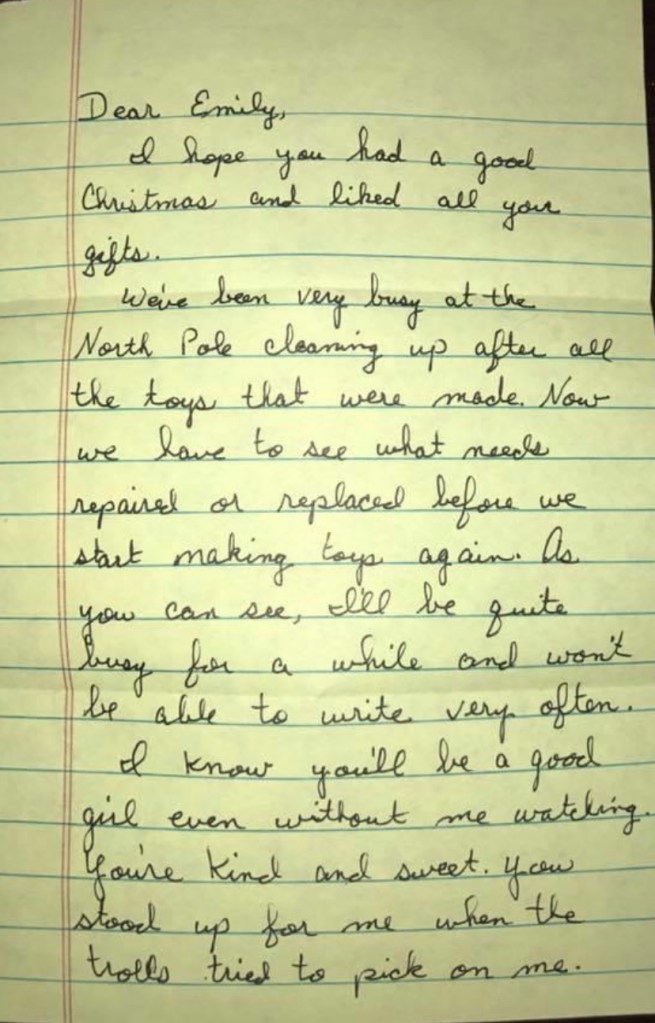 Dear Emily,
I hope you had a good
Christmas and liked all your
gifts.
We've been very busy at the
North Pole cleaning up after all
the toys that were made. Now
we have to see what needs
repaired or replaced before we
start making toys again. As
you can see, I'll be quite
busy for a while and won't
be able to write very often.
I know you'll be a good
girl even without me watching.
You're kind and sweet. You
stood up for me when the
trolls tried to pick on me.